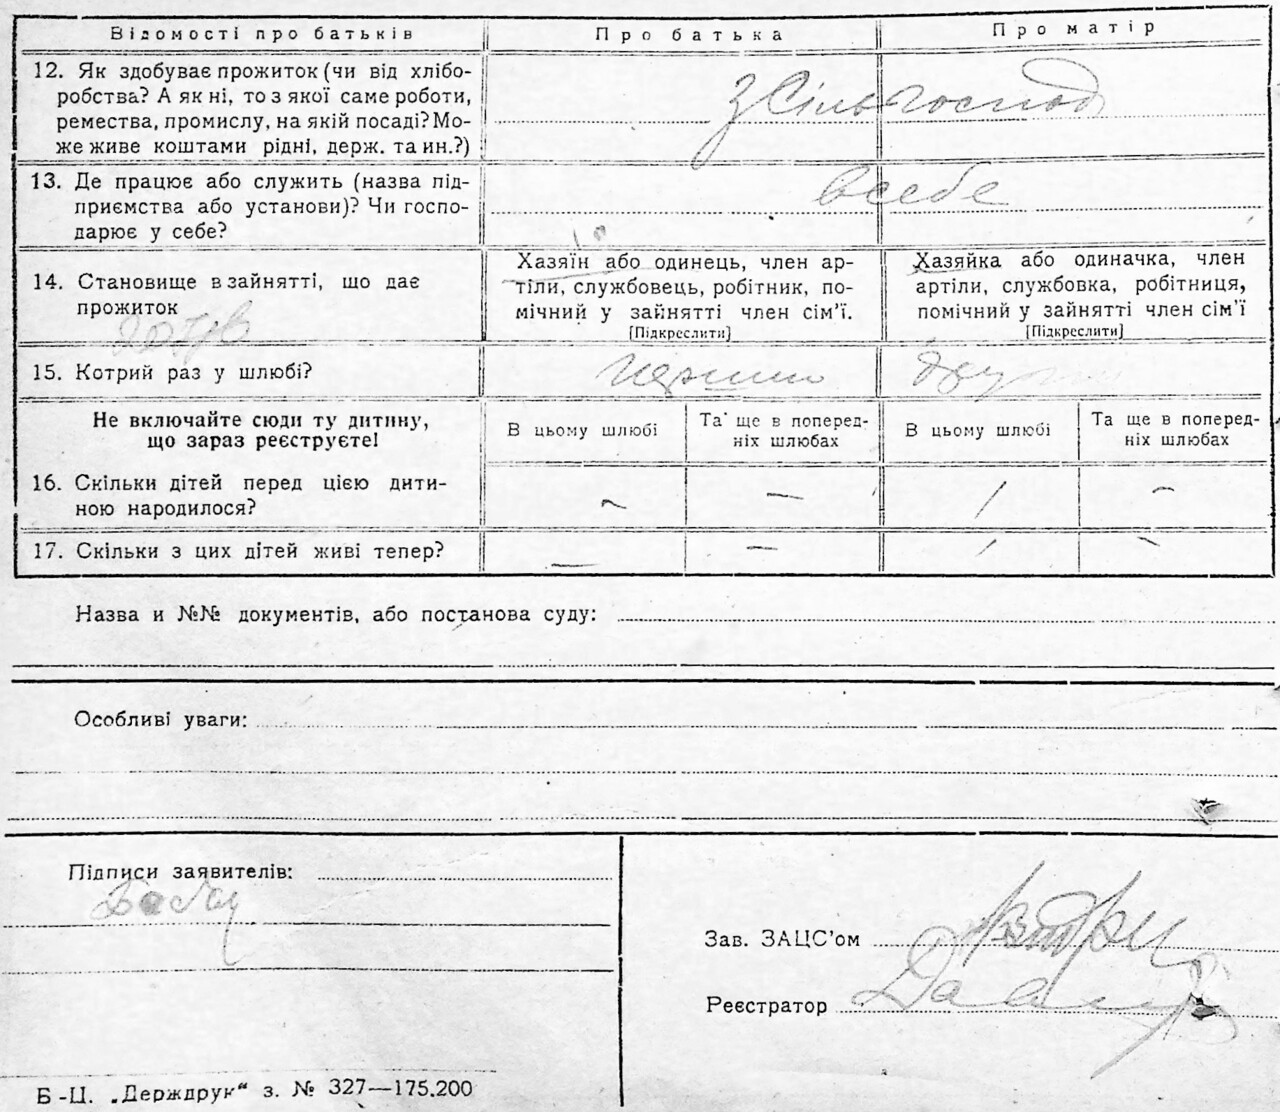 Відомості про батьків Про батька Про матір
12. Як здобуває прожиток (чи від хлібо-
робства? А як ні, то з якої саме роботи,
ремества, промислу, на якій посаді? Мо-
же живе коштами рідні, держ. та ин.?)
З Сільгоспод
13. Де працює або служить (назва під-
приємства або установи)? Чи госпо-
дарює у себе?
всебе
14. Становище в зайнятті, що дає
прожиток
Хазяїн або одинець, член ар-
тіли, службовець, робітник, по-
мічний у зайнятті член сім'ї.
[Підкреслити]
Хазяйка або одиначка, член
артіли, службовка, робітниця,
помічний у зайнятті член сім'ї
[Підкреслити]
15. Котрий раз у шлюбі? дру
Не включайте сюди ту дитину,
що зараз реєструєте!
В цьому шлюбі
Та ще в поперед-
ніх шлюбах
В цьому шлюбі
Та ще в поперед-
ніх шлюбах
16. Скільки дітей перед цією дити-
ною народилося?
– – / –
17. Скільки з цих дітей живі тепер?
– – / –
Назва и №№ документів, або постанова суду:
Особливі уваги:
Підписи заявителів:
Зав. ЗАЦС'ом
Реєстратор
Б-Ц. „Держдрук“ з. № 327—175.200